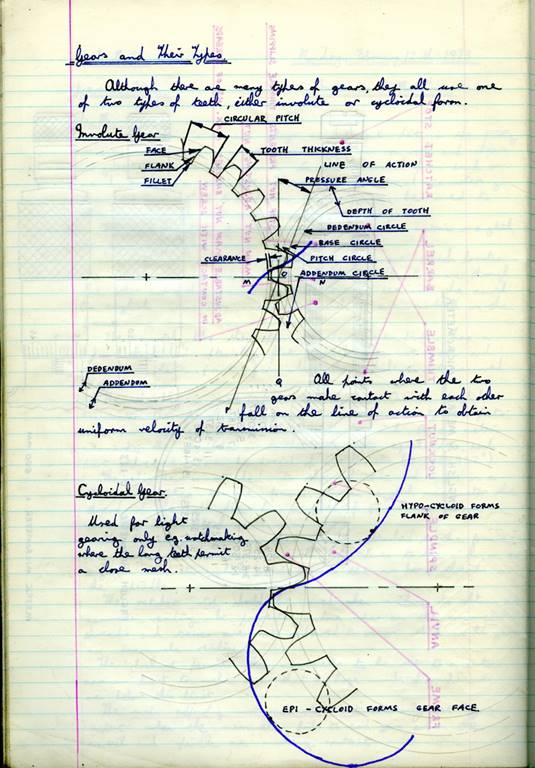 Gears and Their Types.
Although there are many types of gears, they all use one
of two types of teeth, either involute or cycloidal form.
Involute Gear
CIRCULAR PITCH
FACE
TOOTH THICKNESS
FLANK
LINE OF ACTION
FILLET
PRESSURE ANGLE
DEPTH OF TOOTH
DEDENDUM CIRCLE
BASE CIRCLE
CLEARANCE
PITCH CIRCLE
ADDENDUM CIRCLE
M
O
N
DEDENDUM
ADDENDUM
Q
All points where the two
gears make contact with each other
fall on the line of action to obtain
uniform velocity of transmission.
Cycloidal Gear.
Used for light
gearing only eg. watchmaking
where the long teeth permit
a close mesh.
HYPO-CYCLOID FORMS
FLANK OF GEAR
EPI - CYCLOID FORMS GEAR FACE.